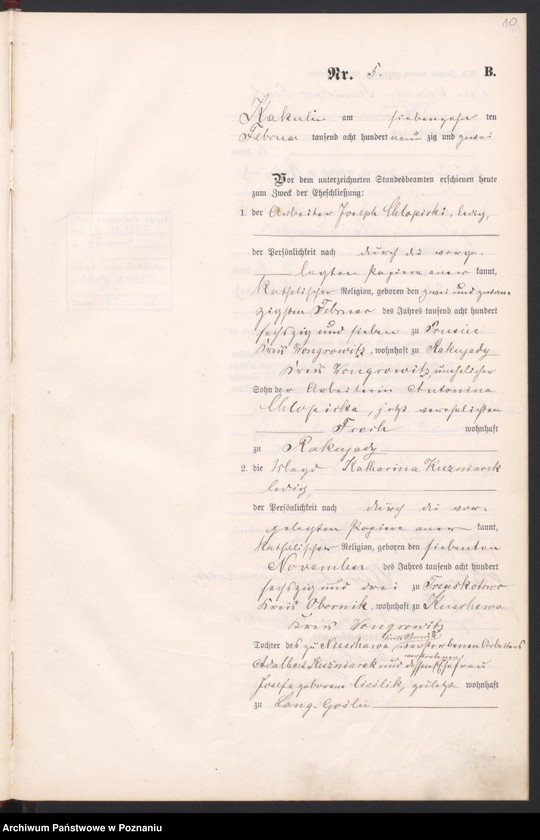 10
Nr. 5. B.
Rakulin am siebenzehn ten
Februar tausend acht hundert neun zig und zwei
Vor dem unterzeichneten Standesbeamten erschienen heute
zum Zweck der Eheschließung:
1. der Arbeiter Joseph Chlopicki, ledig,
der Persönlichkeit nach durch die vorge-
legten Papiere aner kannt,
katholischer Religion, geboren den zwei und zwan-
zigsten Februar des Jahres tausend acht hundert
sechszig und sieben zu Prusiec
Kreis Wongrowitz, wohnhaft zu Rakujady
Kreis Wongrowitz, unehelicher
Sohn der Arbeiterin Antonina
Chlopicka, jetzt verehelichten
Froch wohnhaft
zu Rakujady
2. die Magd Katharina Kuzniarek
ledig,
der Persönlichkeit nach durch die vor-
gelegten Papiere aner kannt,
katholischer Religion, geboren den siebenten
November des Jahres tausend acht hundert
sechszig und drei zu
Kreis Obornik, wohnhaft zu
Kreis Wongrowitz
Tochter des zu verstorbenen Arbeiters
verstorbenen
Adalbert Kuzniarek und dessen Ehefrau
Josefa geborene zuletzt wohnhaft
zu Lang-Goslin
Archiwum Państwowe w Poznaniu